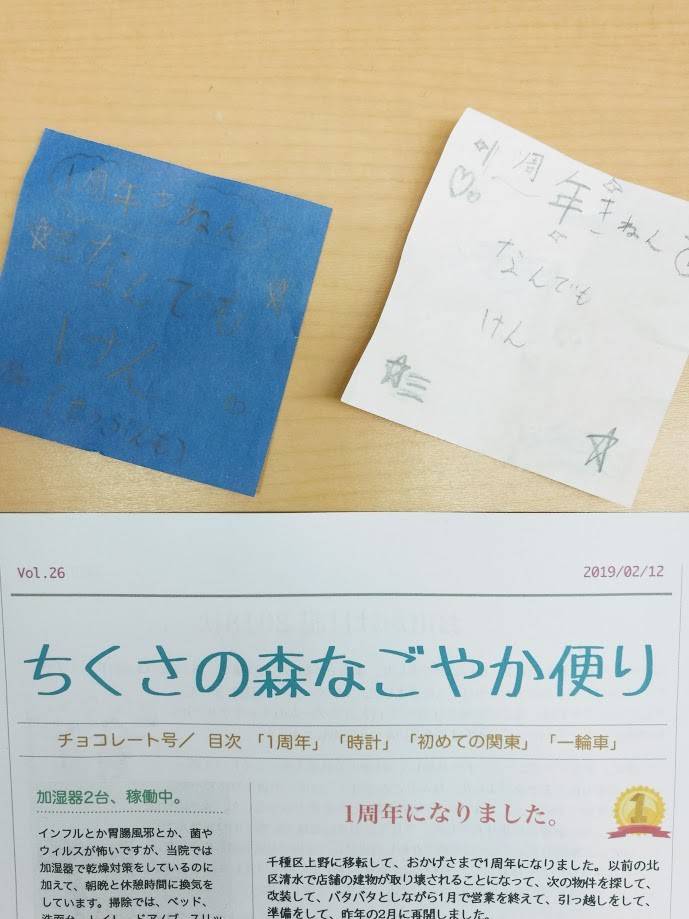 1周年きねん
なんでも
けん
1周年きねん
なんでも
けん
Vol.26
2019/02/12
ちくさの森なごやか便り
チョコレート号／ 目次 「1周年」「時計」「初めての関東」「一輪車」
加湿器2台、稼働中。
インフルとか胃腸風邪とか、菌や
ウィルスが怖いですが、当院では
加湿器で乾燥対策をしているのに
加えて、朝晩と休憩時間に換気を
しています。掃除では、ベッド、
1周年になりました。
1
千種区上野に移転して、おかげさまで1周年になりました。以前の北
区清水で店舗の建物が取り壊されることになって、次の物件を探して、
改装して、バタバタとしながら1月で営業を終えて、引っ越しをして、
準備をして、昨年の2月に再開しました。